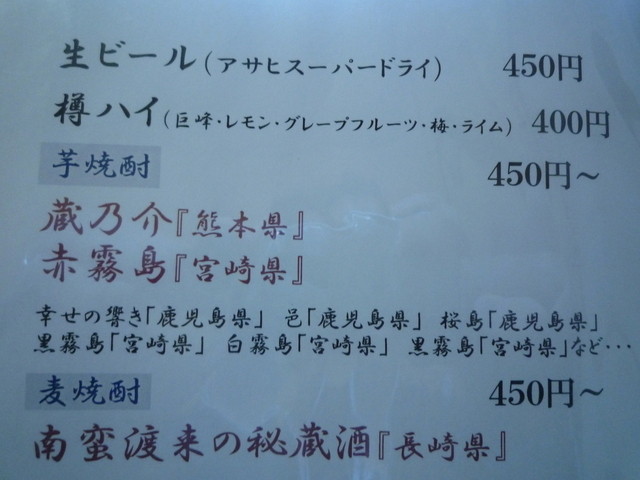 生ビール(アサヒスーパードライ) 450円
樽ハイ(巨峰・レモン・グレープフルーツ・梅・ライム) 400円
芋焼酎 450円～
蔵乃介『熊本県』
赤霧島『宮崎県』
幸せの響き「鹿児島県」 邑「鹿児島県」 桜島「鹿児島県」
黒霧島「宮崎県」 白霧島「宮崎県」 黒霧島「宮崎県」など・・・
麦焼酎 450円～
南蛮渡来の秘蔵酒『長崎県』